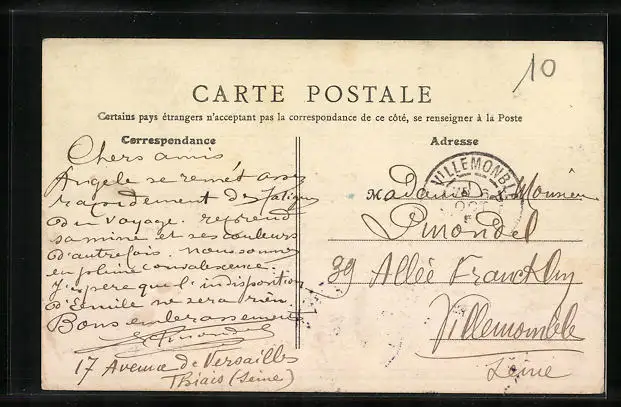 10
CARTE POSTALE
Certains pays étrangers n'acceptent pas la correspondance de ce côté, se renseigner à la Poste
Correspondance
Chers amis
Angele se remet assez
rapidement des fatigues
du voyage. reprend
sa mine et ses couleurs
d'autrefois. nous sommes
en pleine convalescence.
J'espère que l'indisposition
d'Emile ne sera rien.
Bons embrassements
17 Avenue de Versailles
Thiais (Seine)
Adresse
VILLEMOMBLE
Madame & Monsieur
Pmondel
39 Allée Francklin
Villemomble
Seine